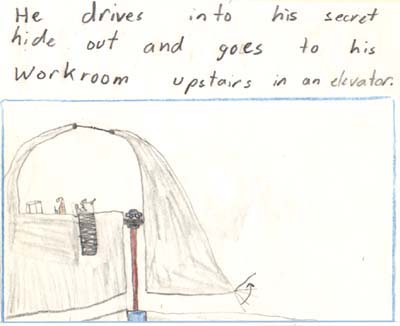 He drives into his secret
hide out and goes to his
Workroom upstairs in an elevator.